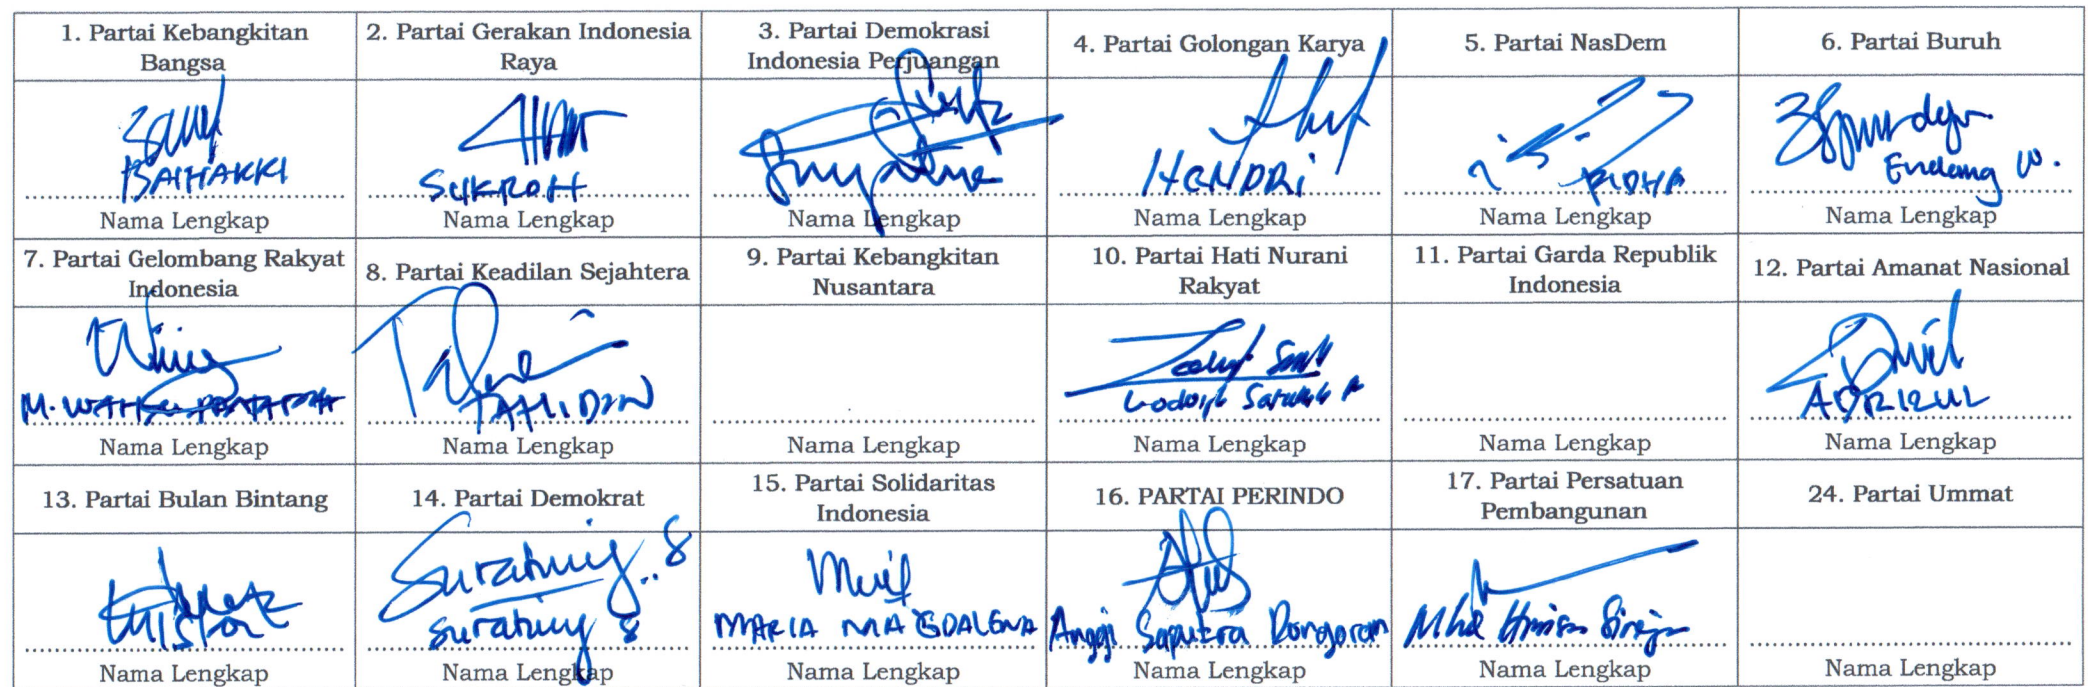 1. Partai Kebangkitan
Bangsa
2. Partai Gerakan Indonesia
Raya
3. Partai Demokrasi
Indonesia Perjuangan
4. Partai Golongan Karya
5. Partai NasDem
6. Partai Buruh
BAIHAKKI
SUKROH
HENDRI
RIDHA
Endang W.
Nama Lengkap
Nama Lengkap
Nama Lengkap
Nama Lengkap
Nama Lengkap
Nama Lengkap
7. Partai Gelombang Rakyat
Indonesia
8. Partai Keadilan Sejahtera
9. Partai Kebangkitan
Nusantara
10. Partai Hati Nurani
Rakyat
11. Partai Garda Republik
Indonesia
12. Partai Amanat Nasional
M.
TAHIDIN
Nama Lengkap
Nama Lengkap
Nama Lengkap
Nama Lengkap
Nama Lengkap
Nama Lengkap
13. Partai Bulan Bintang
14. Partai Demokrat
15. Partai Solidaritas
Indonesia
16. PARTAI PERINDO
17. Partai Persatuan
Pembangunan
24. Partai Ummat
MARIA MAGDALENA
Anggi Saputra Dongoran
Nama Lengkap
Nama Lengkap
Nama Lengkap
Nama Lengkap
Nama Lengkap
Nama Lengkap